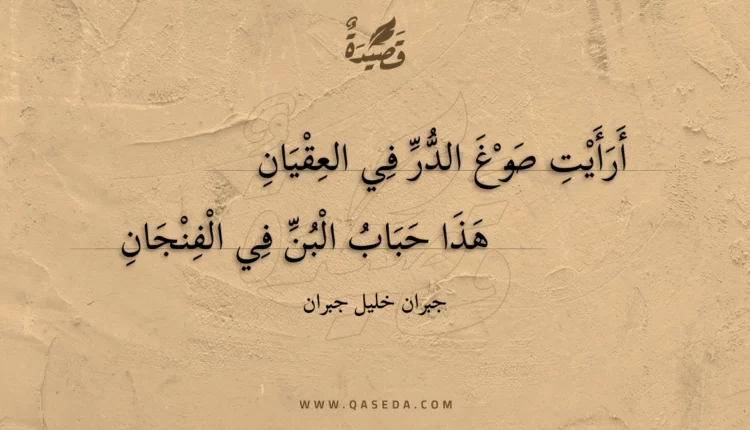 قَصِيدَةٌ
أَرَأَيْتِ صَوْغَ الدُّرِّ فِي العِقْيَانِ
هَذَا حَبَابُ الْبُنِّ فِي الْفِنْجَانِ
جبران خليل جبران
WWW.QASEDA.COM